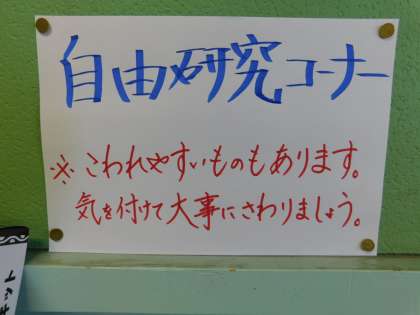 自由研究コーナー
※こわれやすいものもあります。
気を付けて大事にさわりましょう。